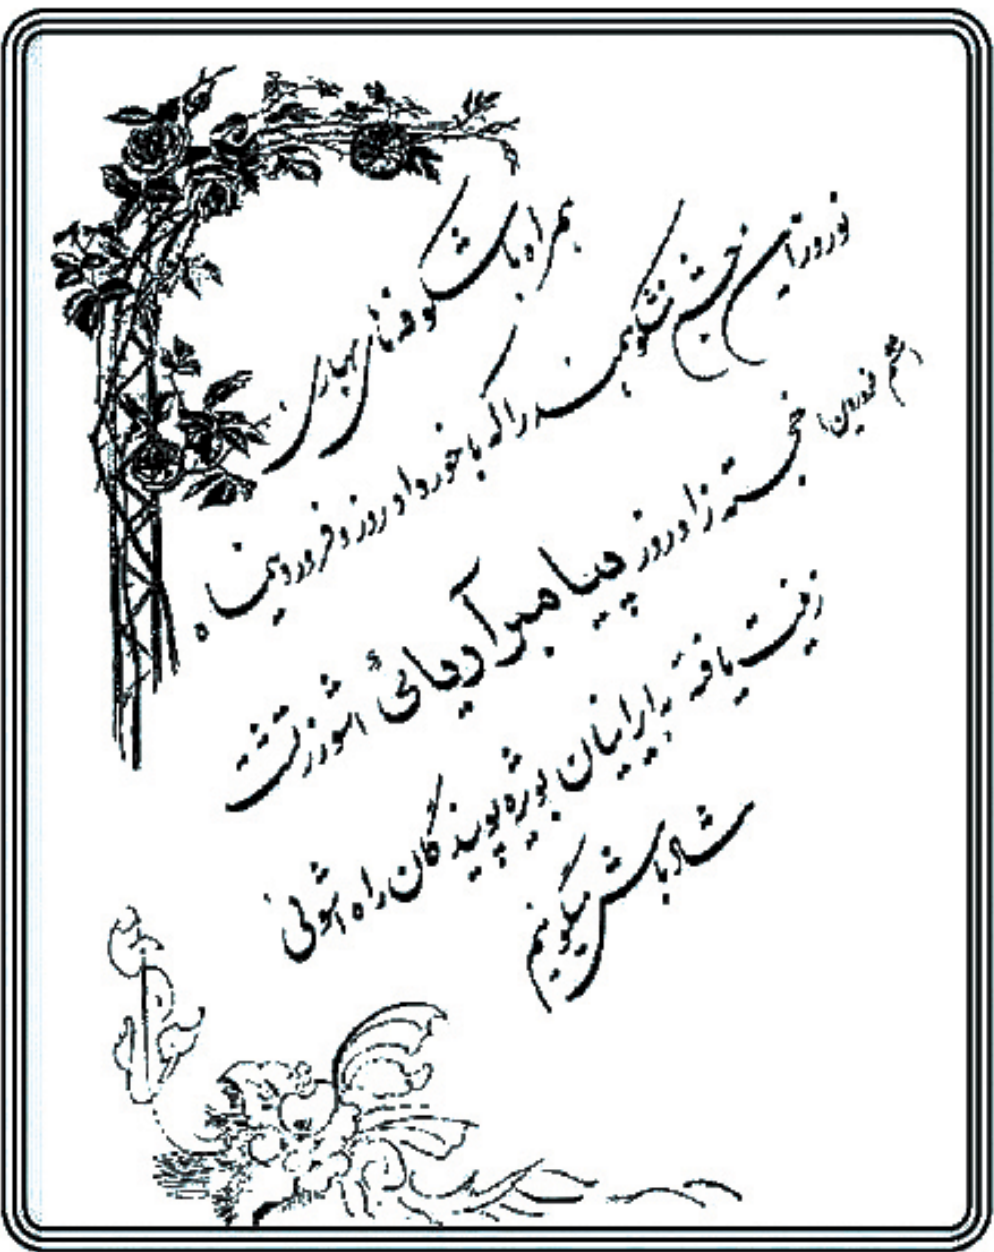 همراه با شکوفه های بهاری
نوروز این جشن شکوهمند را که با خورداد روز و فروردینماه
(ششم فروردین) خجسته زادروز پیامبر آریائی اشوزرتشت
زینت یافته به ایرانیان بویژه پویندگان راه اشوئی
شادباش میگوئیم